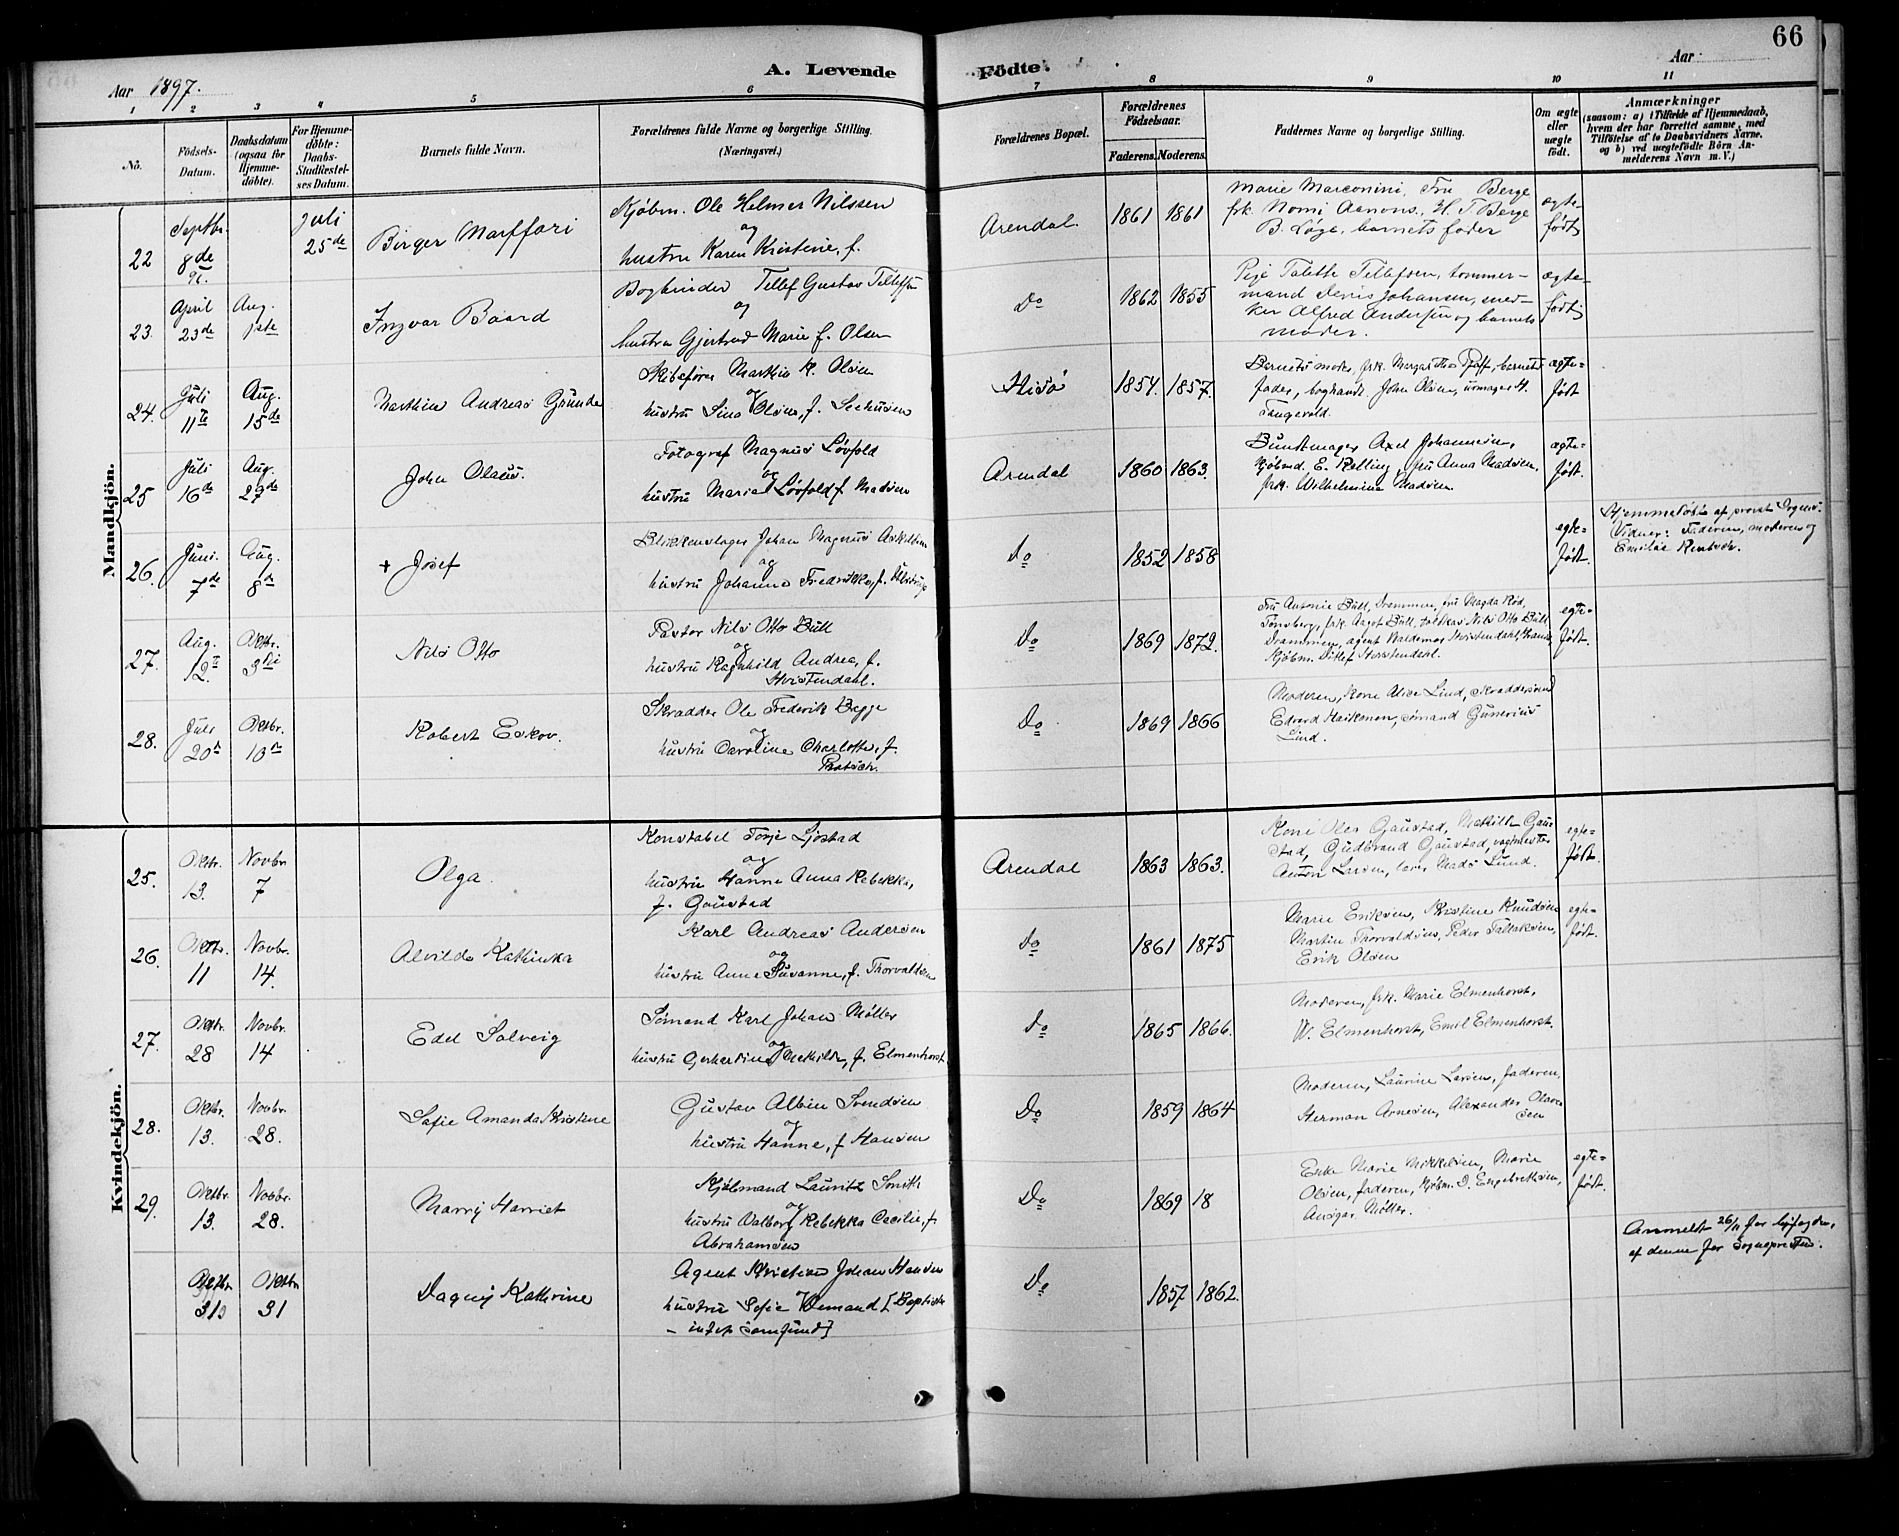 66
Aar 1897.
A. Levende
Fødte.
Aar
1 2 3 4 5 6 7 8 9 10 11
No.
Fødsels-Datum.
Daabsdatum (ogsaa for Hjemmedøbte).
For Hjemmedøbte: Daabs-Stadfæstelses Datum.
Barnets fulde Navn.
Forældrenes fulde Navne og borgerlige Stilling.
(Næringsvei.)
Forældrenes Bopæl.
Forældrenes Fødselsaar.
Faderens. Moderens.
Faddernes Navne og borgerlige Stilling.
Om ægte eller uægte født.
Anmærkninger
(saasom: a) i Tilfælde af Hjemmedaab,
hvem der har forrettet samme, med
Tilføielse af to Daabsvidners Navne.
og b) ved uægtefødte Børn Anmelderens Navn m. V.)
Mandkjön.
22 Septbr. 8de 96. Juli 25de Birger Marffari
Kjøbm. Ole Helmer Nilssen
og
hustru Karen Kristine, f.
Arendal. 1861 1861
Marie Marconini, Fru Berge
frk. Nomi Aanons., H. T. Berge
B. Løge, barnets fader
ægte-født
23. April 23de Aug. 1ste Ingvar Baard
Bogbinder Tellef Gustav Tellefsen
og
hustru Gjertrud Marie f. Olsen
Do 1862 1855
Pige Talette Tellefsen, tømmer-
mand Denis Johansen, sned-
ker Alfred Andersen og barnets
moder.
ægte-født
24. Juli 11te Aug. 15de Marthin Andreas Grunde
Skibsfører Marthin K. Olsen
og
hustru Sina Olsen, f. Seehusen
Hisö 1854. 1857.
Barnets moder, frk. Margarethe Pfaff, barnets
fader, boghandl. John Olsen, urmager H.
Tangevold.
ægte-født
25 Juli 16de Aug. 29de John Olaus.
Fotograf Magnus Løvfold
og
hustru Maria Løvfold f. Madsen
Arendal 1860 1863.
Buntmager Axel Johannesen,
kjøbmd. E. Relling, fru Anna Madsen,
frk. Wilhelmine Madsen.
ægte-født.
26. Juni. 7de Aug. 8de + Josef
Blikkenslager Johan Magnus Askelsen
og
hustru Johanne Fredrikke, f.
Do 1852 1858
egte-født.
Hjemmedøbt af provst
Vidner: Faderen, moderen og
Emilie Rentsch.
27. Aug. 12te Oktbr. 3die Nils Otto
Pastor Nils Otto Bull
og
hustru Ragnhild Andrea, f.
Hvistendahl.
Do 1869 1872.
Fru Antonie Bull, Drammen, fru Magda Rød,
Tønsberg, frk. Aagot Bull, toldkas. Nils Otto Bull,
Drammen, agent Waldemar Hvistendahl,
Kjøbm. Ditlef Hvistendahl.
egte-født.
28. Juli 20de Oktbr. 10de Robert Eskov.
Skrædder Ole Frederik Bagge
og
hustru Caroline Charlotte, f.
Do 1869 1866
Moderen, Kone Alice Lind, skræddersvend
Edvard Haikonen, sømand Gunerius
Lind.
Kvindekjön.
25. Oktbr. 13. Novbr 7 Olga.
Konstabel Torje Ljøstad
og
hustru Hanne Anna Rebekka,
f. Gaustad
Arendal 1863 1863.
Kone Olea Gaustad, Mathilde Gau-
stad, Gudbrand Gaustad, vagtmester
Anton Larsen, Mads Lund.
egte-født.
26. Oktbr. 11 Novbr. 14. Alvilde Kathinka
Karl Andreas Andersen
og
hustru Anne Susanne, f. Thorvaldsen
Do 1861 1875
Marie Eriksen, Kristine Knudsen
Martin Thorvaldsen, Peder Tallaksen,
Erik Olsen
egte-født.
27. Oktbr. 28 Novbr. 14 Edel Solveig
Sømand Karl Johan Møller
og
hustru Gerhardine Mathilde, f. Elmenhorst.
Do 1865 1866.
Moderen, frk. Marie Elmenhorst,
W. Elmenhorst, Emil Elmenhorst.
28. Oktbr. 13. Novbr. 28. Sofie Amanda Kristine
Gustav Albin Svendsen
og
hustru Hanne, f Hansen
Do 1859 1864
Moderen, Laurine Larsen, faderen,
Herman Arnesen, Alexander Olaus-
sen
29. Oktbr. 13. Novbr. 28. Marry Harriet
Kjøbmand Lauritz Smith
og
hustru Valborg Rebekka Cecilie, f.
Abrahamsen
Do 1869 18
Enke Marie Mikkelsen, Marie
Olsen, faderen, kjøbm. D. Engebrektsen,
Ansgar Møller.
egte-født.
Oktbr. 31 Oktbr 31 Dagny Kathrine
Agent Kristian Johan Hansen
og
hustru Sofie Wemand [Baptist-
samfund]
Do 1857 1862.
Anmeldt 26/11 for byfogden,
af denne for sognepresten.